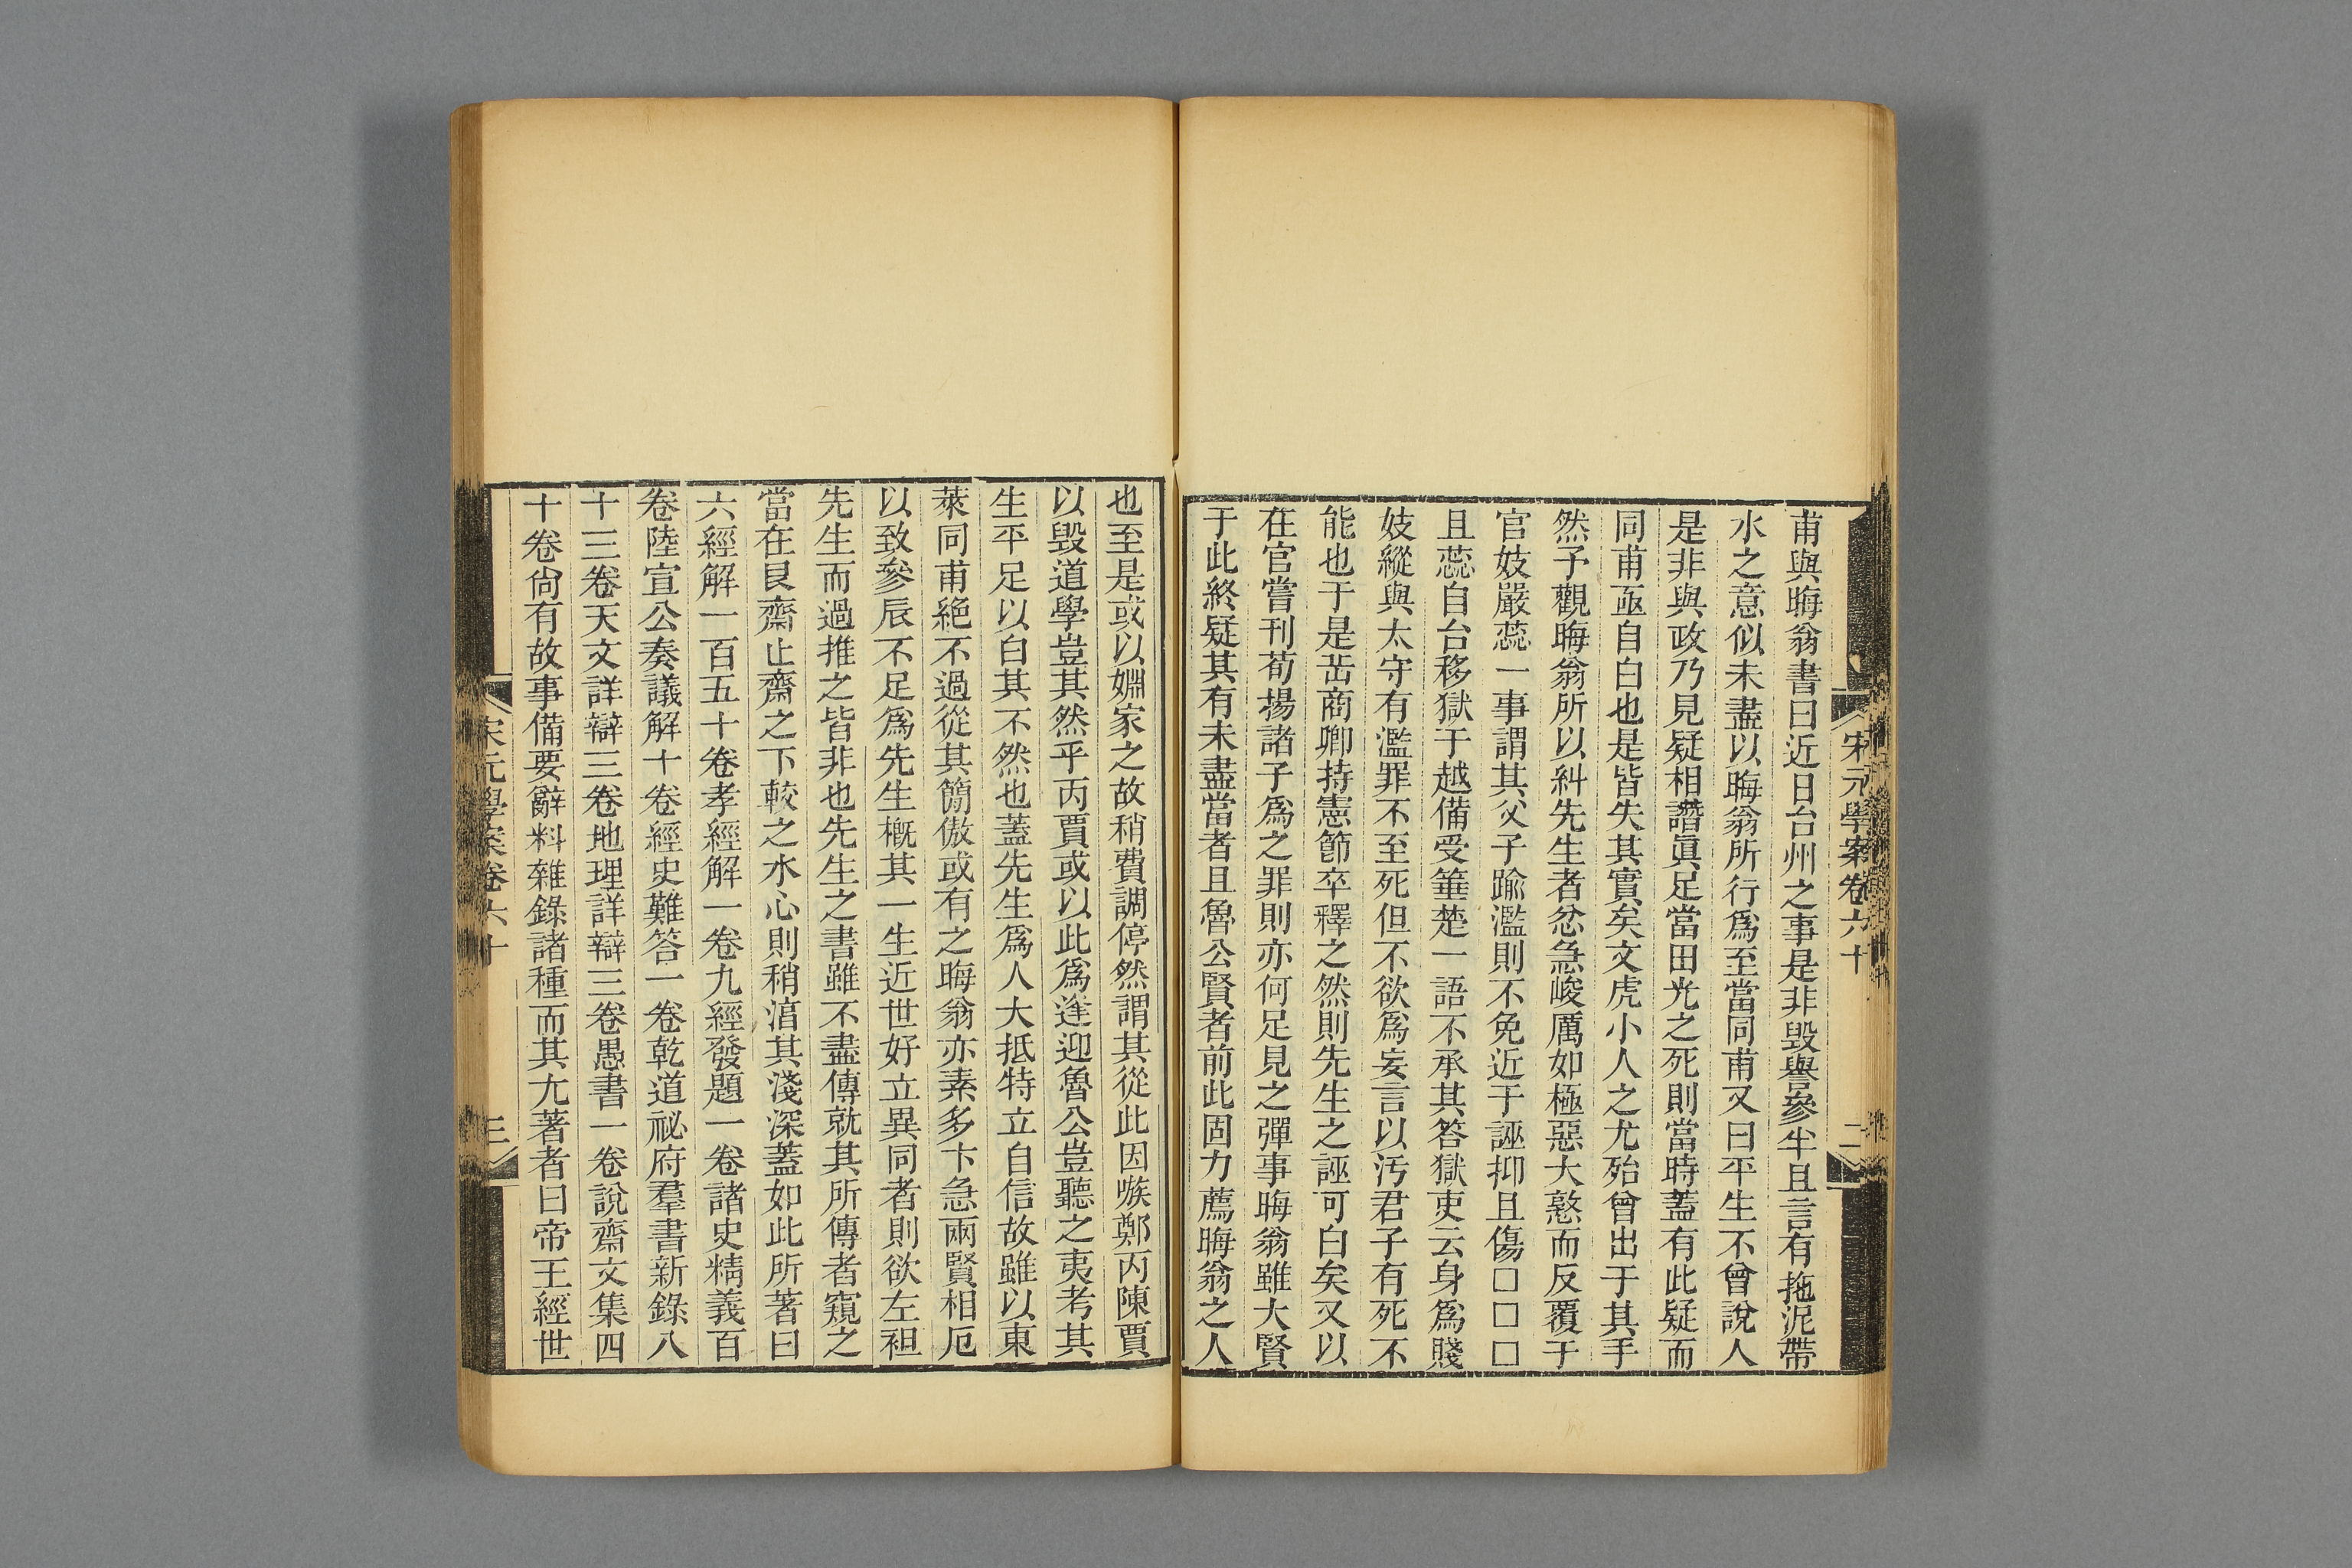 宋元學案卷六十
二
甫與晦翁書曰近日台州之事是非毀譽參半且言有拖泥帶
水之意似未盡以晦翁所行爲至當同甫又曰平生不曾說人
是非與政乃見疑相譖眞足當田光之死則當時蓋有此疑而
同甫亟自白也是皆失其實矣文虎小人之尤殆曾出于其手
然予觀晦翁所以糾先生者忿急峻厲如極惡大憝而反覆于
官妓嚴蕊一事謂其父子踰濫則不免近于誣抑且傷□□□
且蕊自台移獄于越備受箠楚一語不承其答獄吏云身爲賤
妓縱與太守有濫罪不至死但不欲爲妄言以汚君子有死不
能也于是岳商卿持憲節卒釋之然則先生之誣可白矣又以
在官嘗刊荀揚諸子爲之罪則亦何足見之彈事晦翁雖大賢
于此終疑其有未盡當者且魯公賢者前此固力薦晦翁之人
也至是或以婣家之故稍費調停然謂其從此因嗾鄭丙陳賈
以毀道學豈其然乎丙賈或以此爲逢迎魯公豈聽之夷考其
生平足以白其不然也蓋先生爲人大抵特立自信故雖以東
萊同甫絶不過從其簡傲或有之晦翁亦素多卞急兩賢相厄
以致參辰不足爲先生槪其一生近世好立異同者則欲左袒
先生而過推之皆非也先生之書雖不盡傳就其所傳者窺之
當在艮齋止齋之下較之水心則稍湻其淺深蓋如此所著曰
六經解一百五十卷孝經解一卷九經發題一卷諸史精義百
卷陸宣公奏議解十卷經史難答一卷乾道祕府羣書新錄八
十三卷天文詳辯三卷地理詳辯三卷愚書一卷說齋文集四
十卷尙有故事備要辭料雜錄諸種而其尤著者曰帝王經世
宋元學案卷六十
三